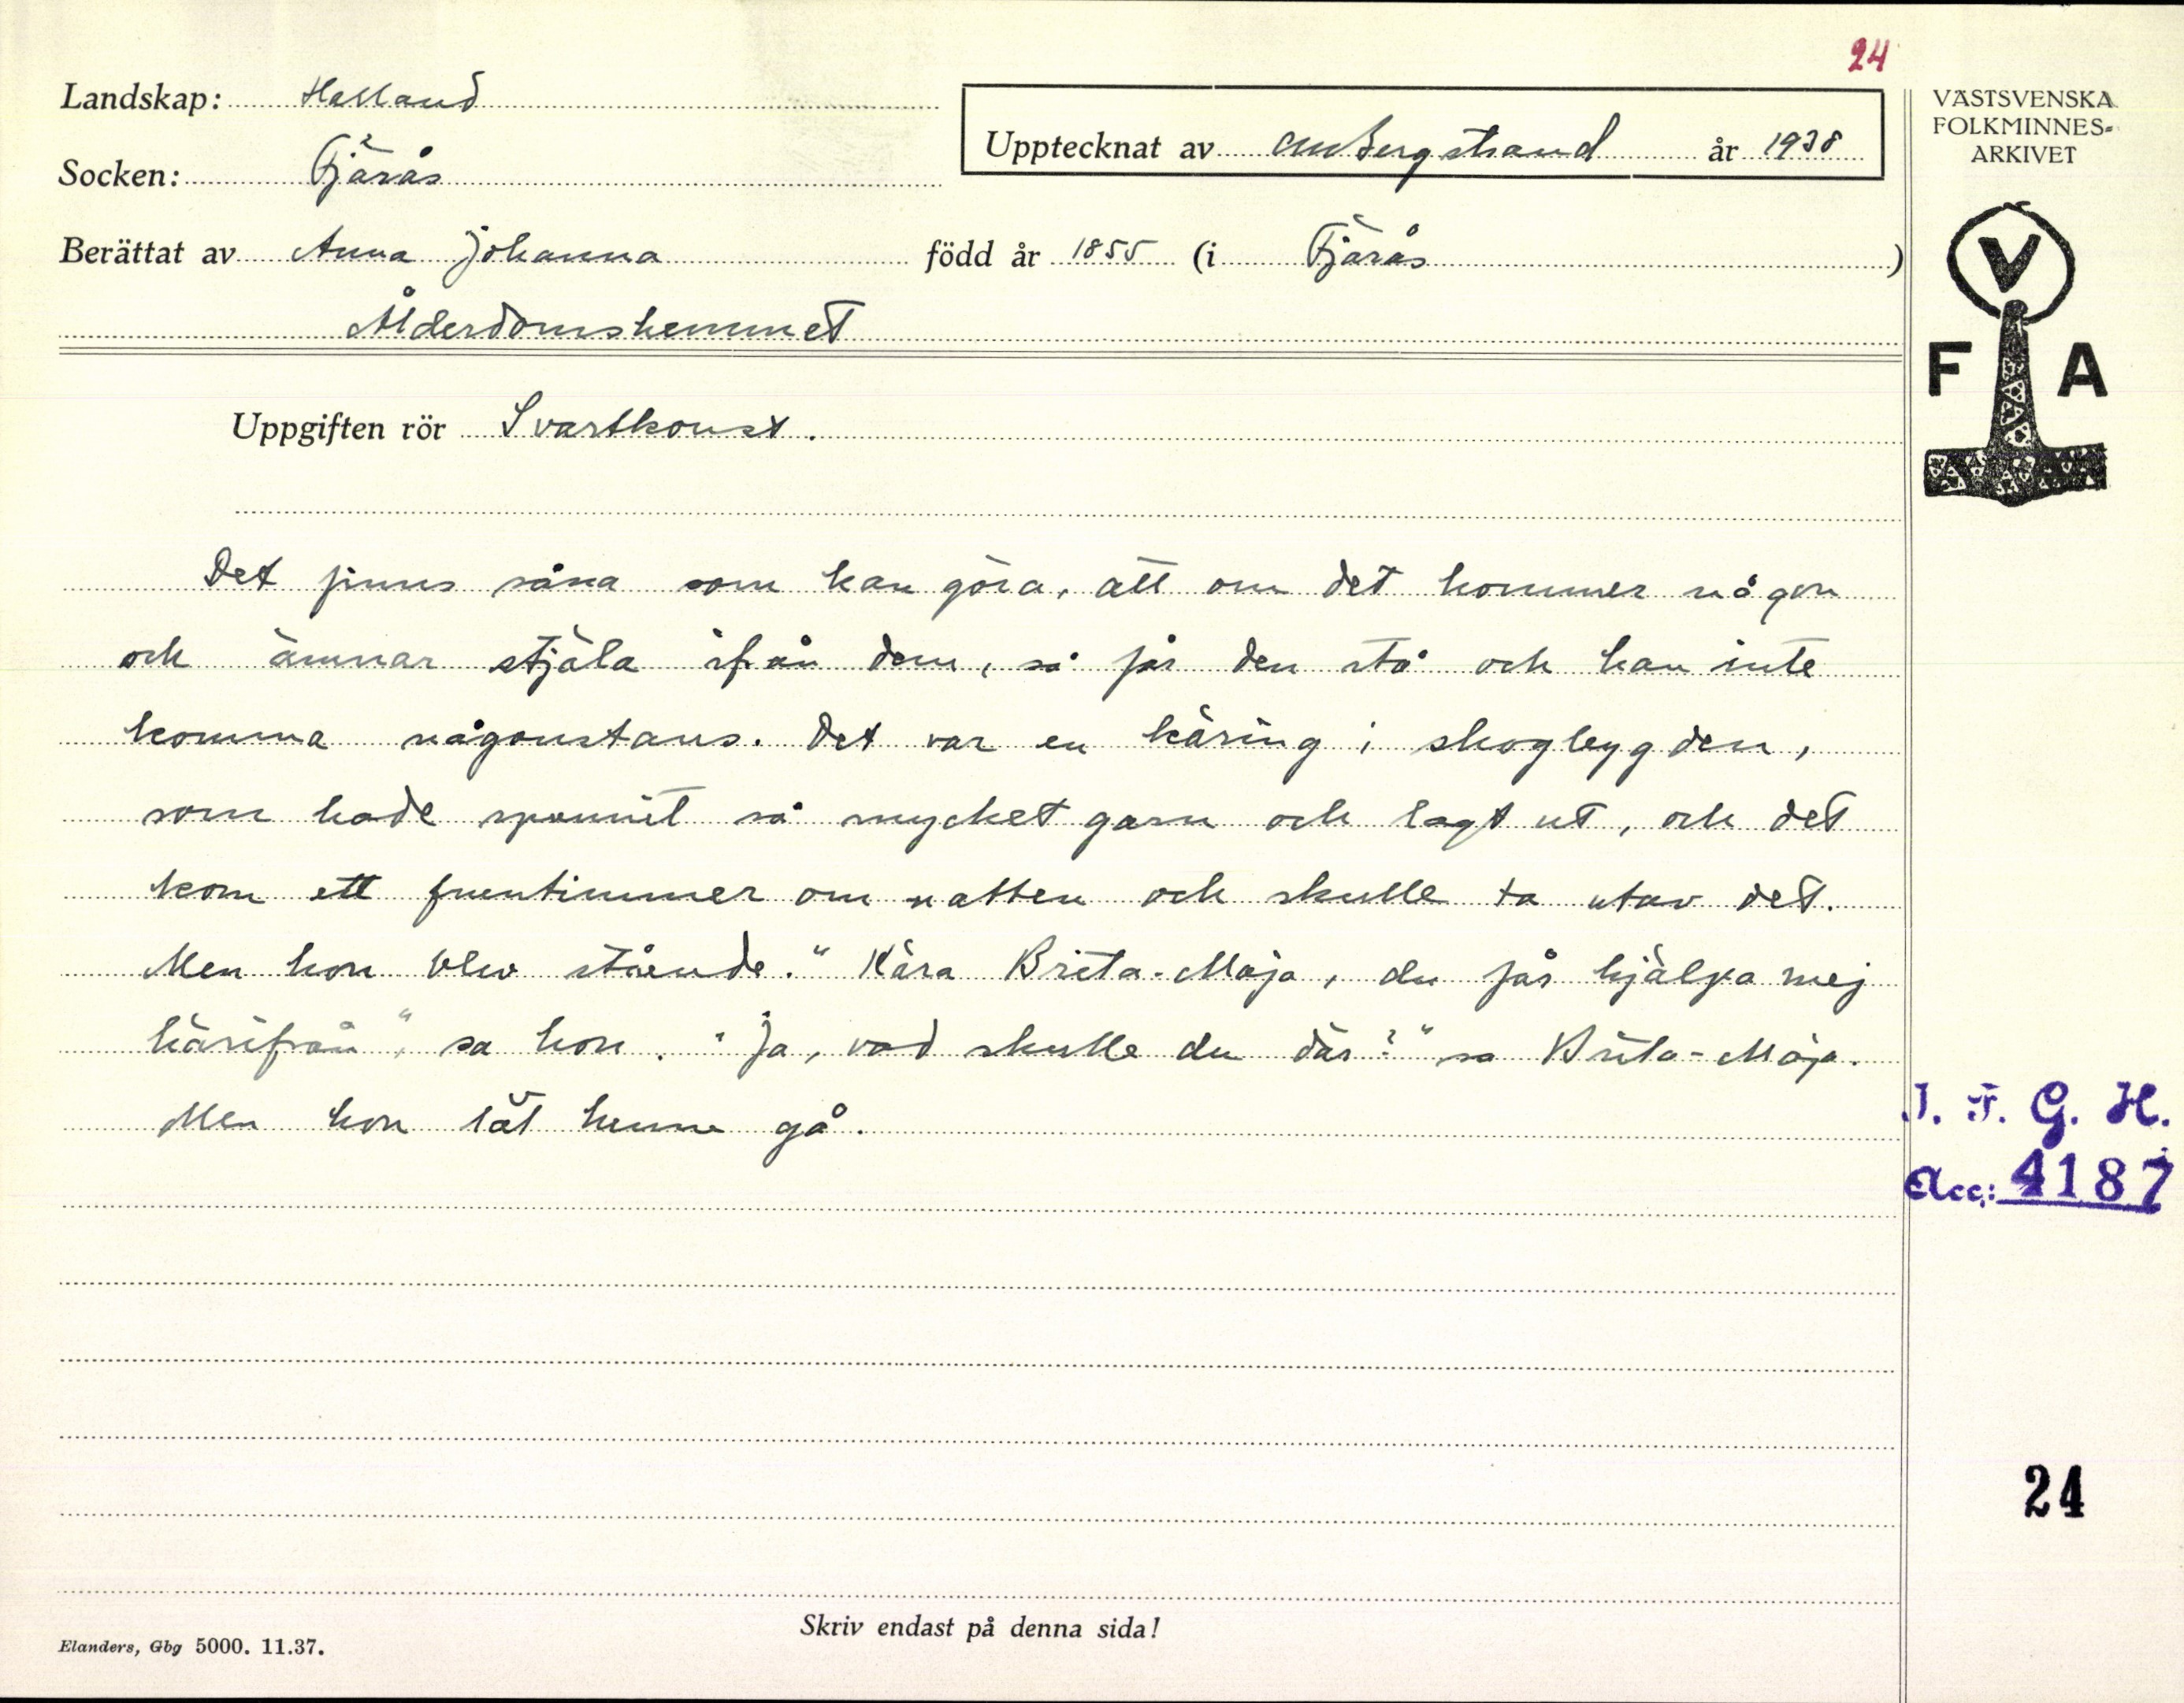 24
Landskap: Halland
Upptecknat av CM Bergstrand år 1938
VÄSTSVENSKA
FOLKMINNES-
ARKIVET
Socken: Fjärås
Berättat av Anna Johanna född år 1855 (i Fjärås)
Ålderdomshemmet
V
F A
Uppgiften rör Svartkonst.
Det finns såna som kan göra, att om det kommer någon
och ämnar stjäla ifrån dem, så får den stå och kan inte
komma någonstans. Det var en käring i skogbygden,
som hade spunnit så mycket garn och lagt ut, och det
kom ett fruentimmer om natten och skulle ta utav det.
Men hon blev stående. "Kära Brita-Maja, du får hjälpa mej
härifrån", sa hon. "Ja, vad skulle du där?" sa Brita-Maja.
Men hon lät henne gå.
I. F. G. H.
Acc: 4187
24
Skriv endast på denna sida!
Elanders, Gbg 5000. 11.37.